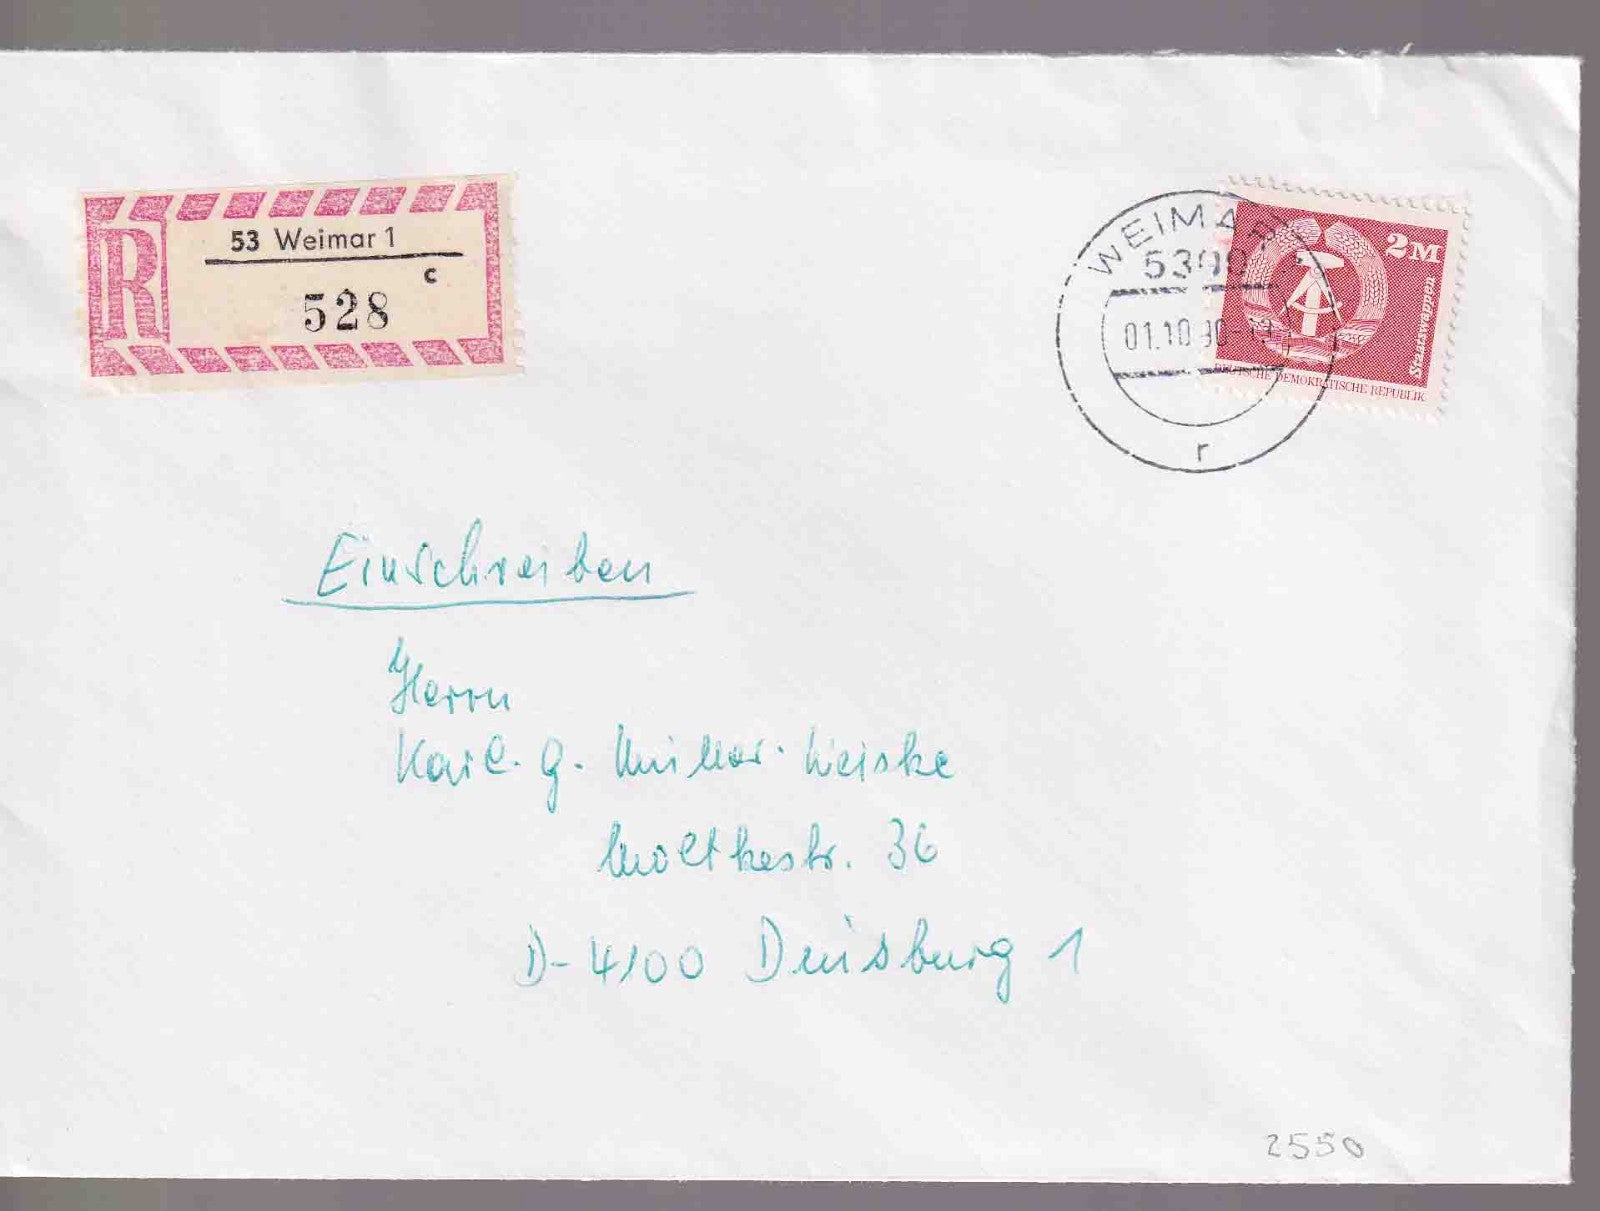 53 Weimar 1
c
R
528
WEIMAR
5300
01.10.90-19
r
2M
Staatswappen
DEUTSCHE DEMOKRATISCHE REPUBLIK
Einschreiben
Herrn
Karl. G. Müller-Weiske
Moltkestr. 36
D-4100 Duisburg 1
2550